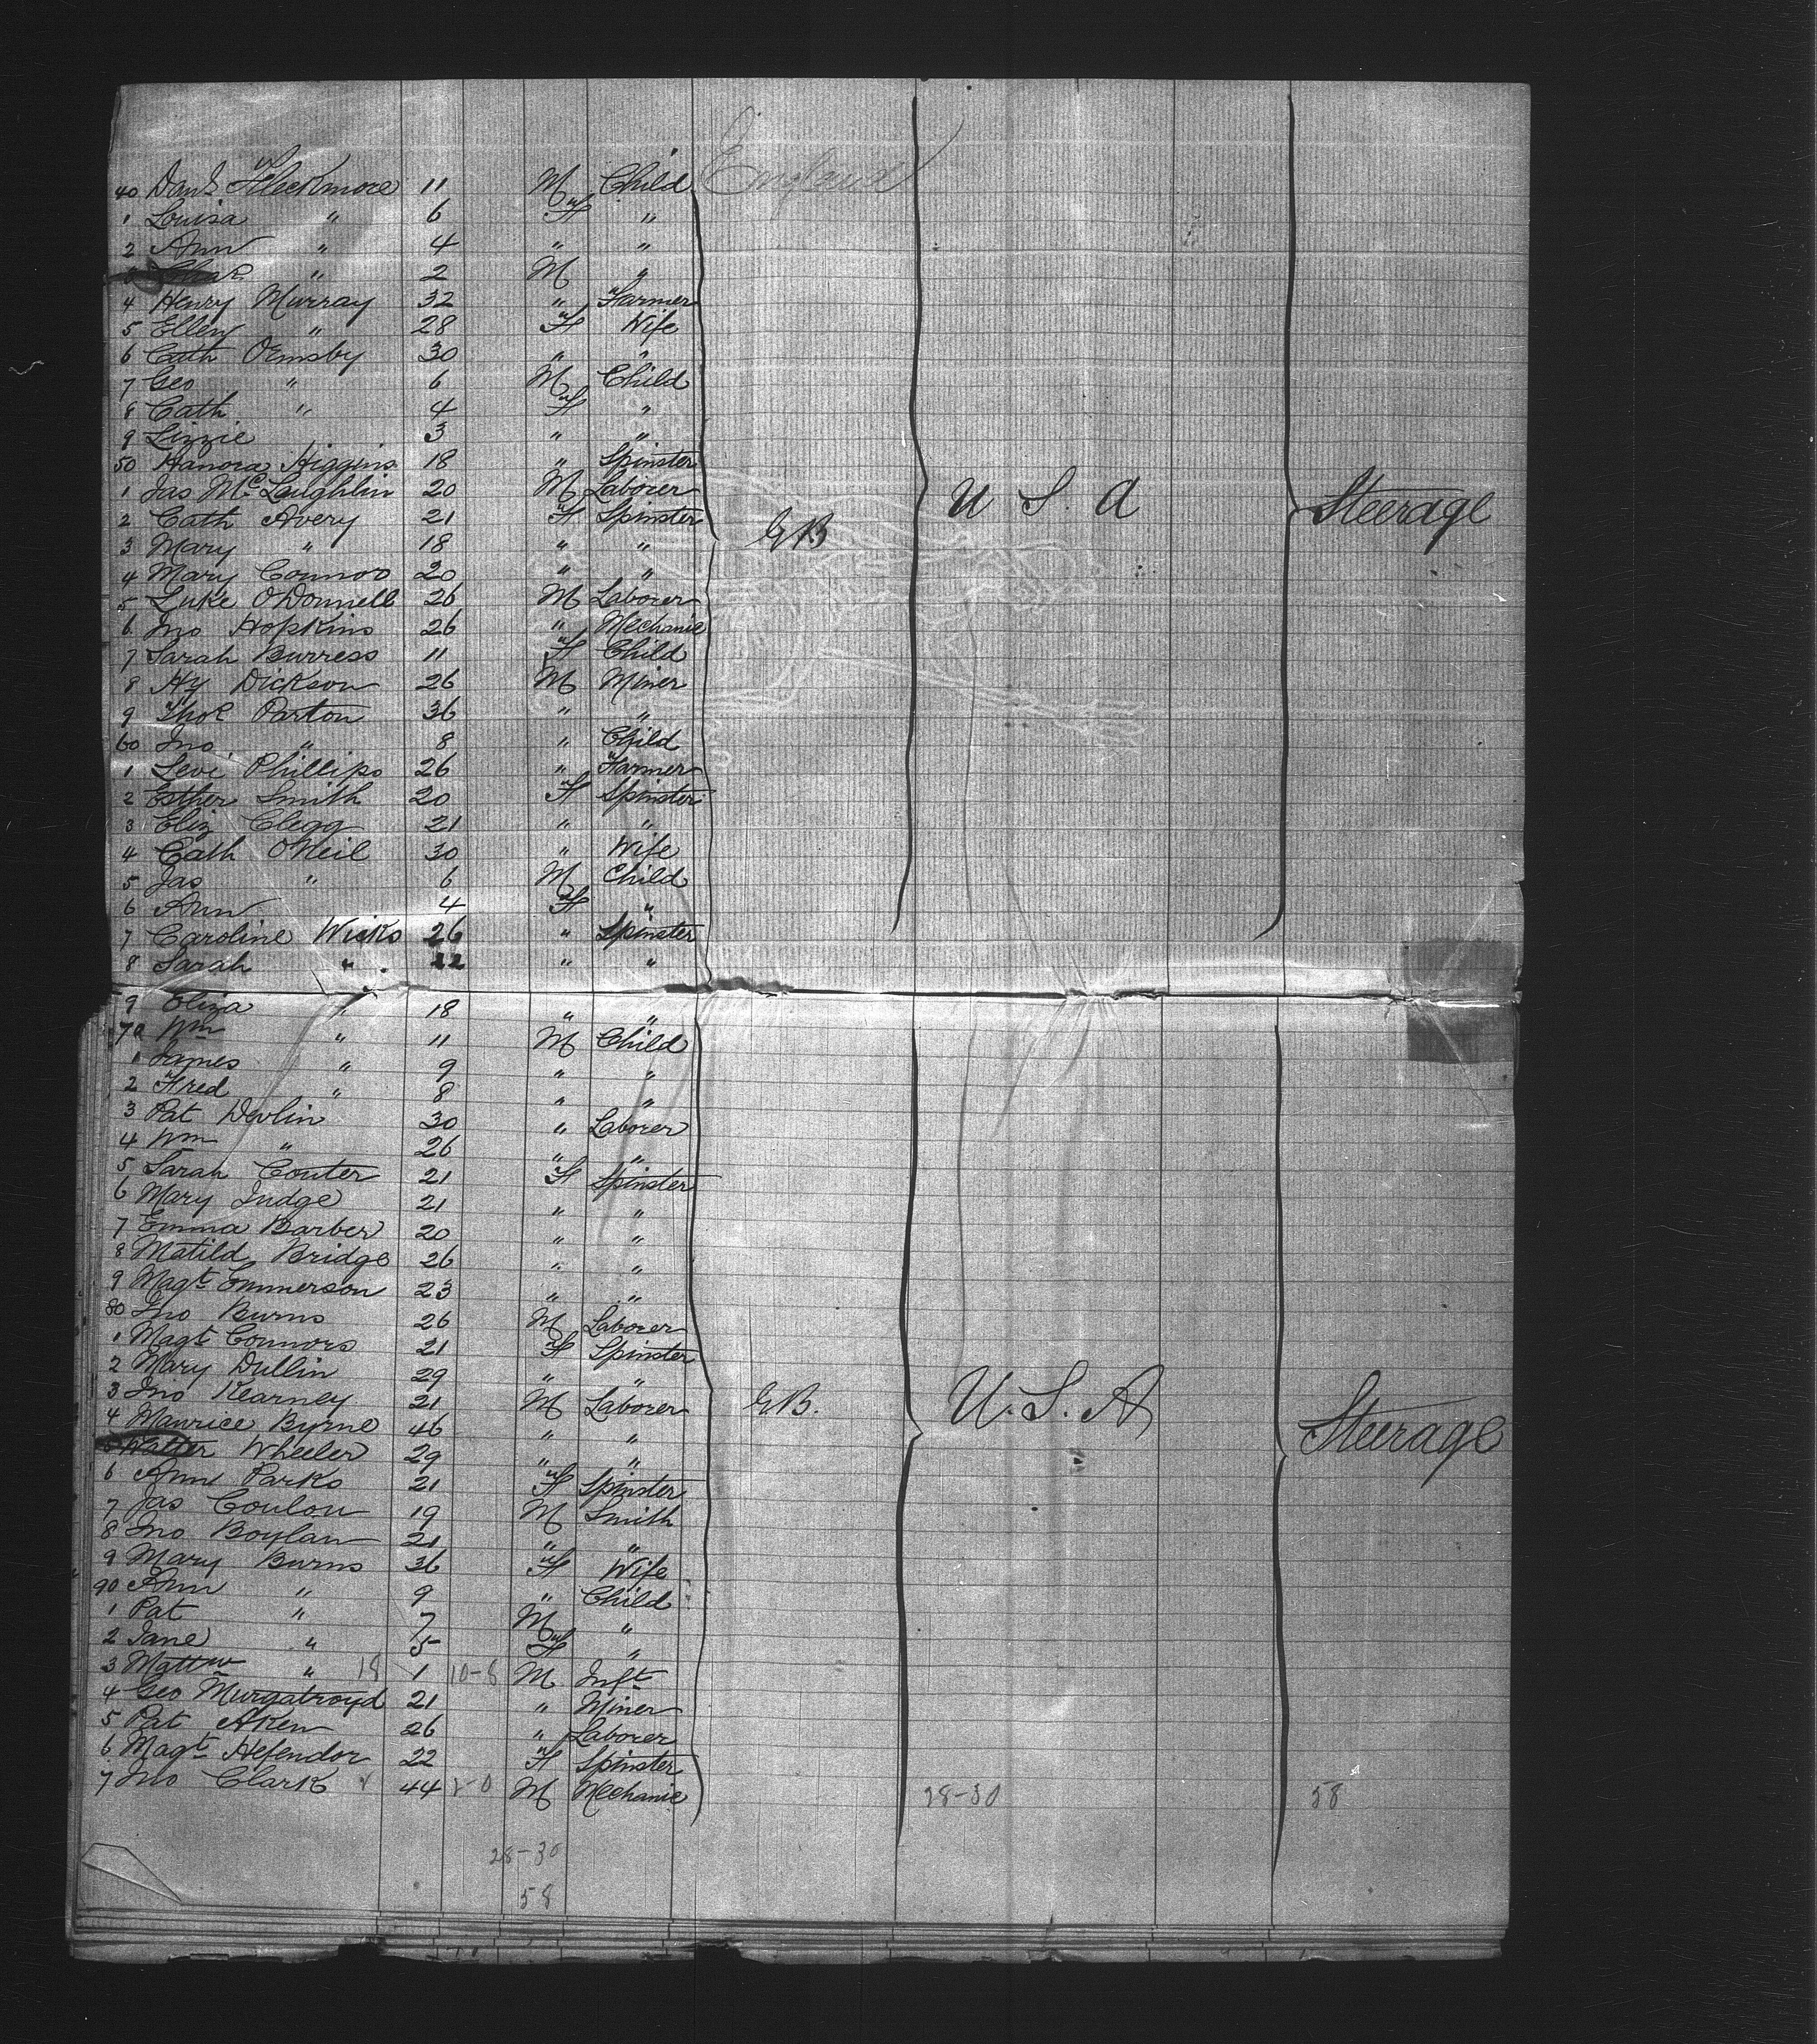 England
40 Danl Fleckmore 11 M Child
1 Louisa " 6 F "
2 Ann " 4 " "
" 2 M "
4 Henry Murray 32 " Farmer
5 Ellen " 28 F Wife
6 Cath Ormsby 30 " "
7 Geo " 6 M Child
8 Cath " 4 F "
9 Lizzie 3 " "
50 Hanora Higgins 18 " Spinster
1 Jas McLaughlin 20 M Laborer
2 Cath Avery 21 F Spinster
GB U S A Steerage
3 Mary " 18 " "
4 Mary Connor 20 " "
5 Luke O'Donnell 26 M Laborer
6 Jno Hopkins 26 " Mechanic
7 Sarah Burress 11 F Child
8 Hy Dickson 26 M Miner
9 Thos Parton 36 " "
60 Jno " 8 " Child
1 Levi Phillips 26 " Farmer
2 Esther Smith 20 F Spinster
3 Eliz Clegg 21 " "
4 Cath O'Neil 30 " Wife
5 Jas " 6 M Child
6 Ann 4 F "
7 Caroline Wicks 26 " Spinster
8 Sarah " 22 " "
9 Eliza " 18 " "
70 Wm " 11 M Child
1 James " 9 " "
2 Fred " 8 " "
3 Pat Devlin 30 " Laborer
4 Wm " 26 " "
5 Sarah Couter 21 F Spinster
6 Mary Judge 21 " "
7 Emma Barber 20 " "
8 Matild Bridge 26 " "
9 Magt Emmerson 23 " "
80 Jno Burns 26 M Laborer
1 Magt Connors 21 F Spinster
2 Mary Dullin 29 " "
3 Jno Kearney 21 M Laborer
G.B. U.S.A Steerage
4 Maurice Byrne 46 " "
Walter Wheeler 29 " "
6 Ann Parks 21 F Spinster
7 Jas Coulon 19 M Smith
8 Jno Boylan 21 " "
9 Mary Burns 36 F Wife
90 Ann " 9 " Child
1 Pat " 7 M "
2 Jane " 5 F "
3 Mattw " 18 1 10-8 M Inft
4 Geo Murgatroyd 21 " Miner
5 Pat Aken 26 " Laborer
6 Magt Hefendor 22 F Spinster
7 Jno Clark 44 2-0 M Mechanic 28-30 58
28-30
58